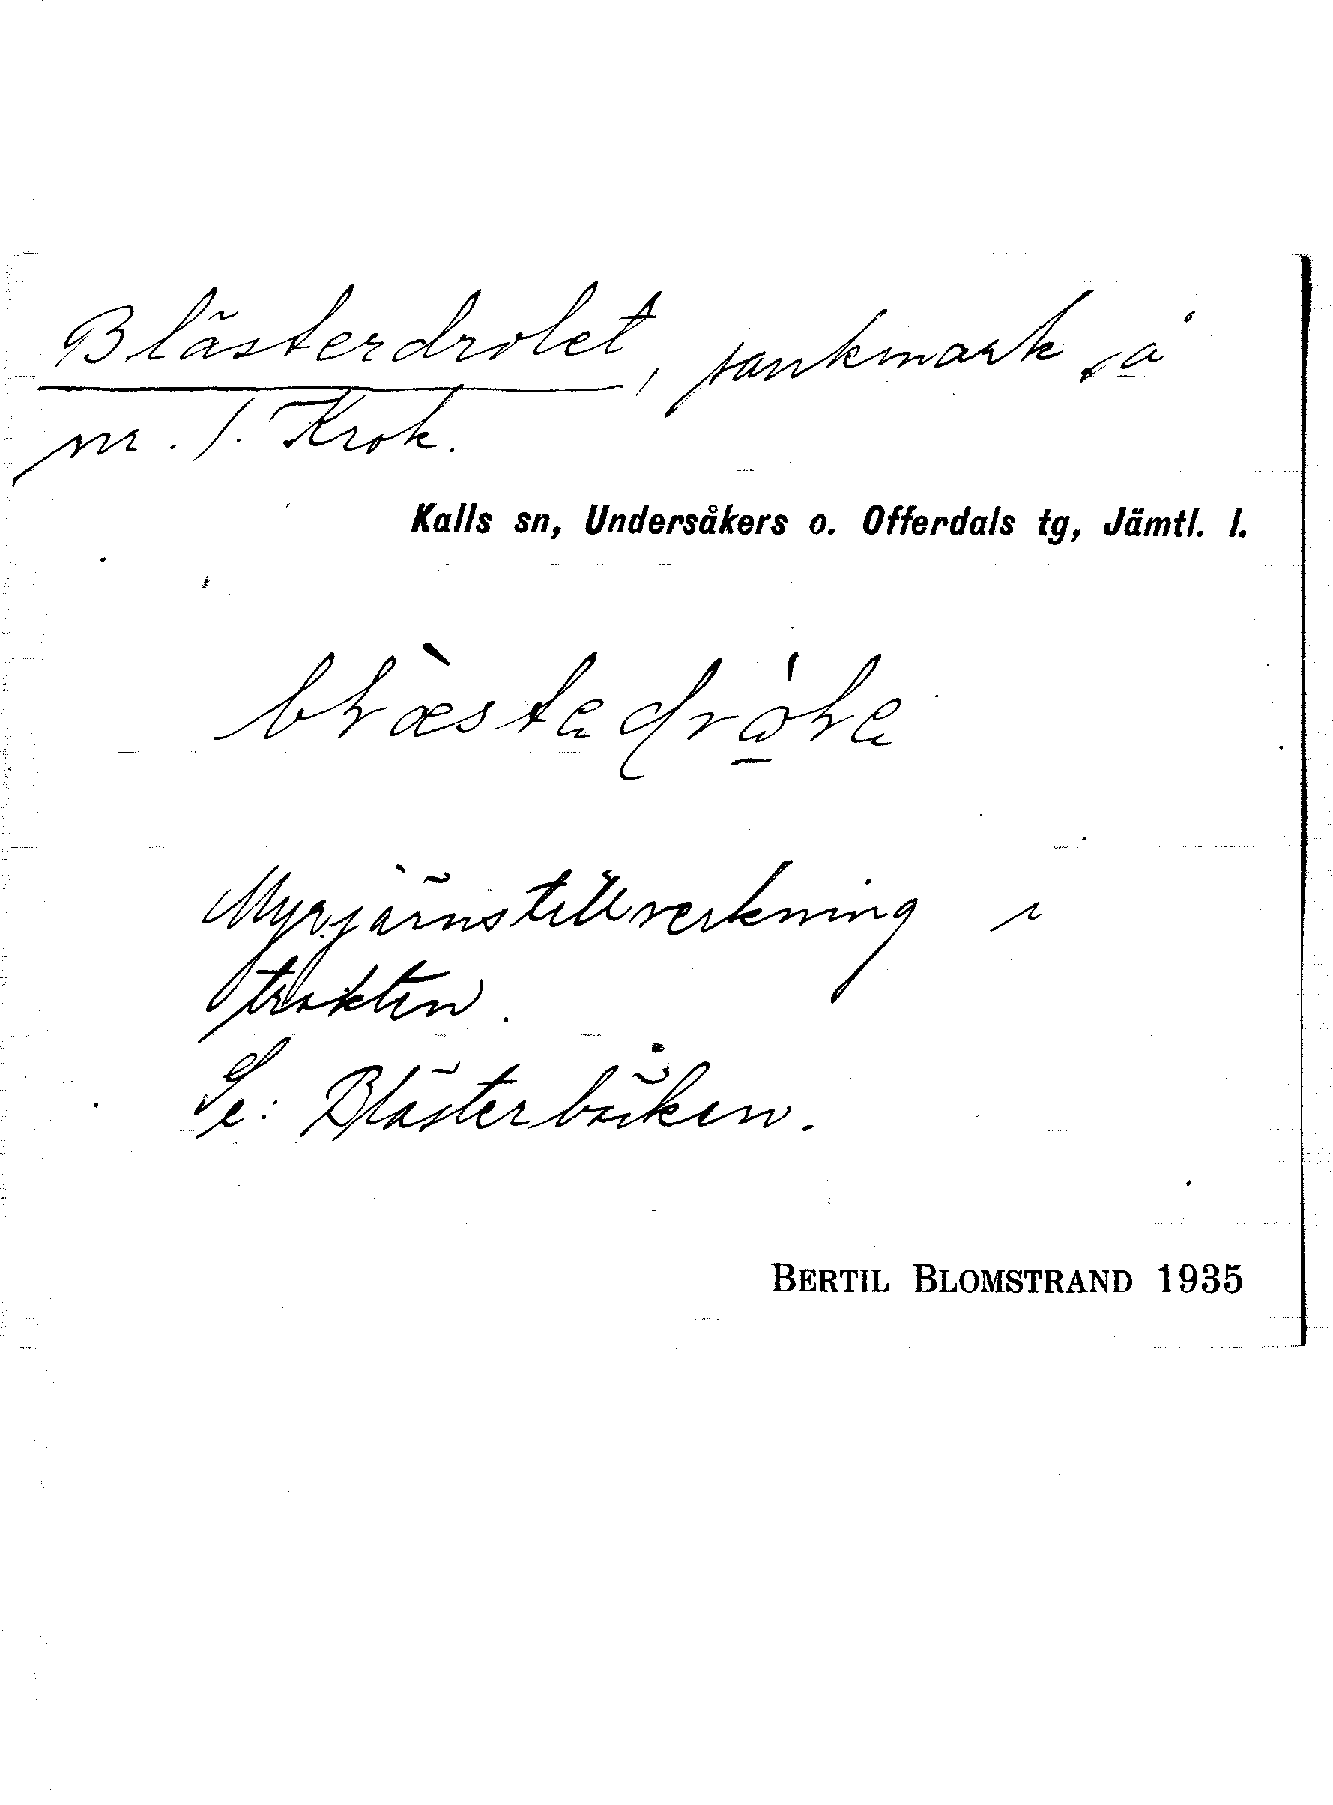 Blästerdrolet, sankmark på
nr. 1. Krok.
Kalls sn, Undersåkers o. Offerdals tg, Jämtl. l.
Myrjärnstillverkning i
trakten.
Se: Blästerbäcken.
BERTIL BLOMSTRAND 1935